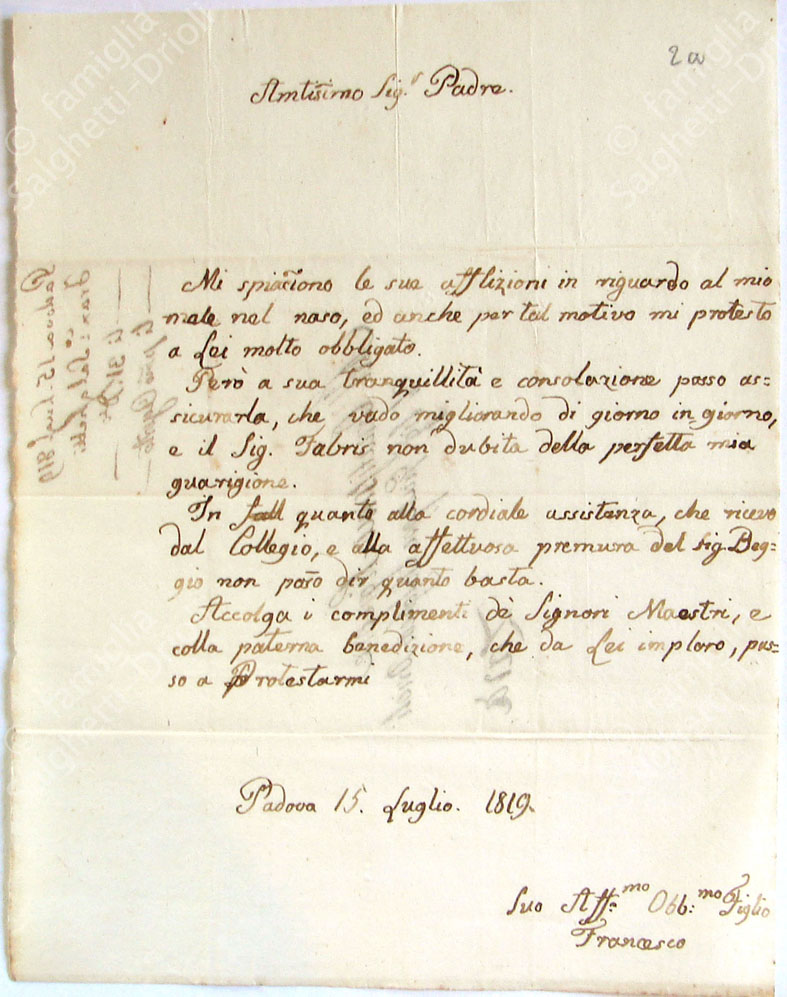 2a
Amtisimo Sig.r Padre.
Mi spiaciono le sue afflizioni in riguardo al mio
male nel naso, ed anche per tal motivo mi protesto
a Lei molto obbligato.
Però a sua tranquillità e consolazione posso as=
sicurarla, che vado migliorando di giorno in giorno,
e il Sig. Fabris non dubita della perfetta mia
guarigione.
In quanto alla cordiale assistenza, che ricevo
dal Collegio, e alla affettuosa premura del Sig. Beg=
gio non poso dir quanto basta.
Accolga i complimenti dè Signori Maestri, e
colla paterna benedizione, che da Lei imploro, pas=
so a Protestarmi
Padova 15. Luglio. 1819.
Suo Aff:mo Obb:mo Figlio
Francesco
Padova 15. Lug. 819
© famiglia
Salghetti-Drioli
© famiglia
Salghetti-Drioli